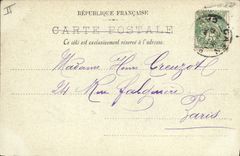 RÉPUBLIQUE FRANÇAISE
CARTE POSTALE
Ce côté est exclusivement réservé à l'adresse.
Madame Henri Creuzot
24 Rue Falguière
Paris